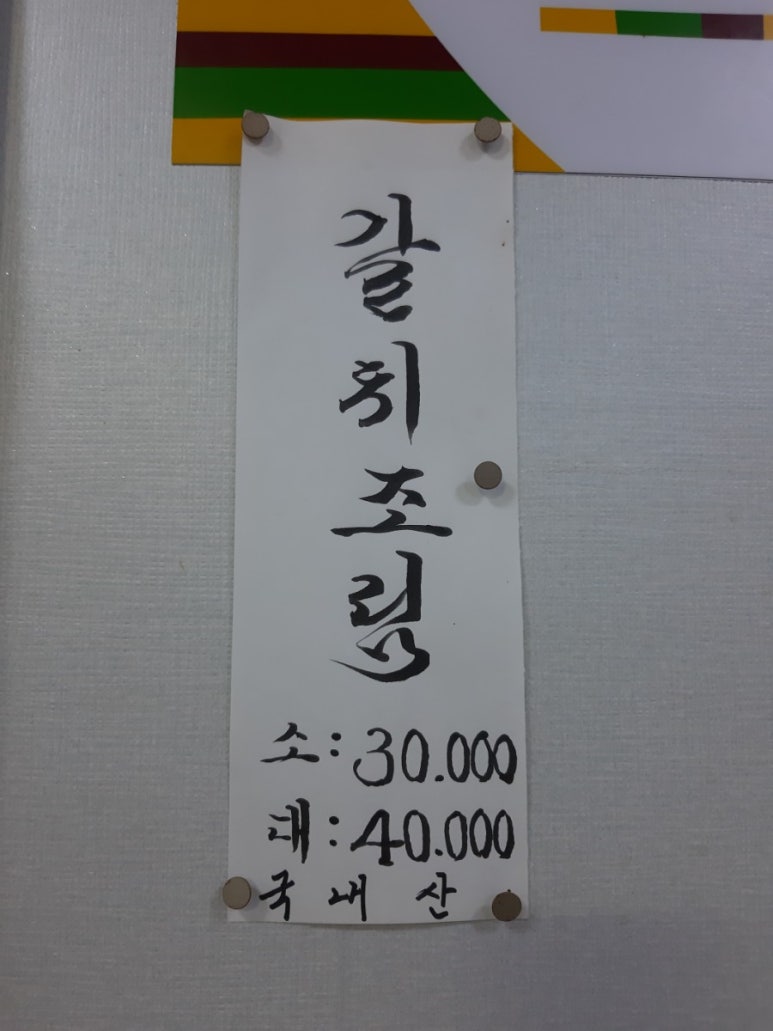 갈치조림
소: 30.000
대: 40.000
국내산